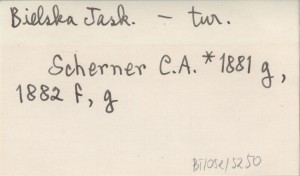 Bielska Jask. – tur.
Scherner C.A. *1881 g,
1882 f, g
BI/OSE/5250